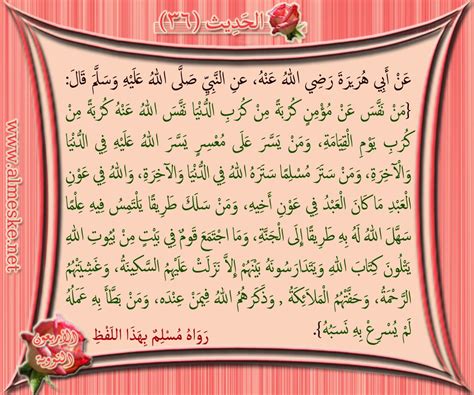 الحَدِيث (٣٦).
عَنْ أَبِي هُرَيْرَةَ رَضِي اللهُ عَنْهُ، عنِ النَّبِيِّ صَلَّى اللهُ عَلَيْهِ وَسَلَّمَ قَالَ:
{مَنْ نَفَّسَ عَنْ مُؤْمِنٍ كُرْبَةً مِنْ كُرَبِ الدُّنْيَا نَفَّسَ اللهُ عَنْهُ كُرْبَةً مِنْ
كُرَبِ يَوْمِ الْقِيَامَةِ، وَمَنْ يَسَّرَ عَلَى مُعْسِرٍ يَسَّرَ اللهُ عَلَيْهِ فِي الدُّنْيَا
وَالْآخِرَةِ، وَمَنْ سَتَرَ مُسْلِمًا سَتَرَهُ اللهُ فِي الدُّنْيَا وَالآخِرَةِ، وَاللهُ فِي عَوْنِ
الْعَبْدِ مَا كَانَ الْعَبْدُ فِي عَوْنِ أَخِيهِ، وَمَنْ سَلَكَ طَرِيقًا يَلْتَمِسُ فِيهِ عِلْمًا
سَهَّلَ اللهُ لَهُ بِهِ طَرِيقًا إِلَى الْجَنَّةِ، وَمَا اجْتَمَعَ قَوْمٌ فِي بَيْتٍ مِنْ بُيُوتِ اللهِ
يَتْلُونَ كِتَابَ اللهِ وَيَتَدَارَسُونَهُ بَيْنَهُمْ إِلاَّ نَزَلَتْ عَلَيْهِمُ السَّكِينَةُ، وَغَشِيَتْهُمُ
الرَّحْمَةُ، وَحَفَّتْهُمُ الْمَلاَئِكَةُ، وَذَكَرَهُمُ اللهُ فِيمَنْ عِنْدَه، وَمَنْ بَطَّأَ بِهِ عَمَلُهُ
لَمْ يُسْرِعْ بِهِ نَسَبُهُ}.
رَوَاهُ مُسْلِمٌ بِهَذَا اللَفْظِ
الأربعون
النووية
www.almeske.net